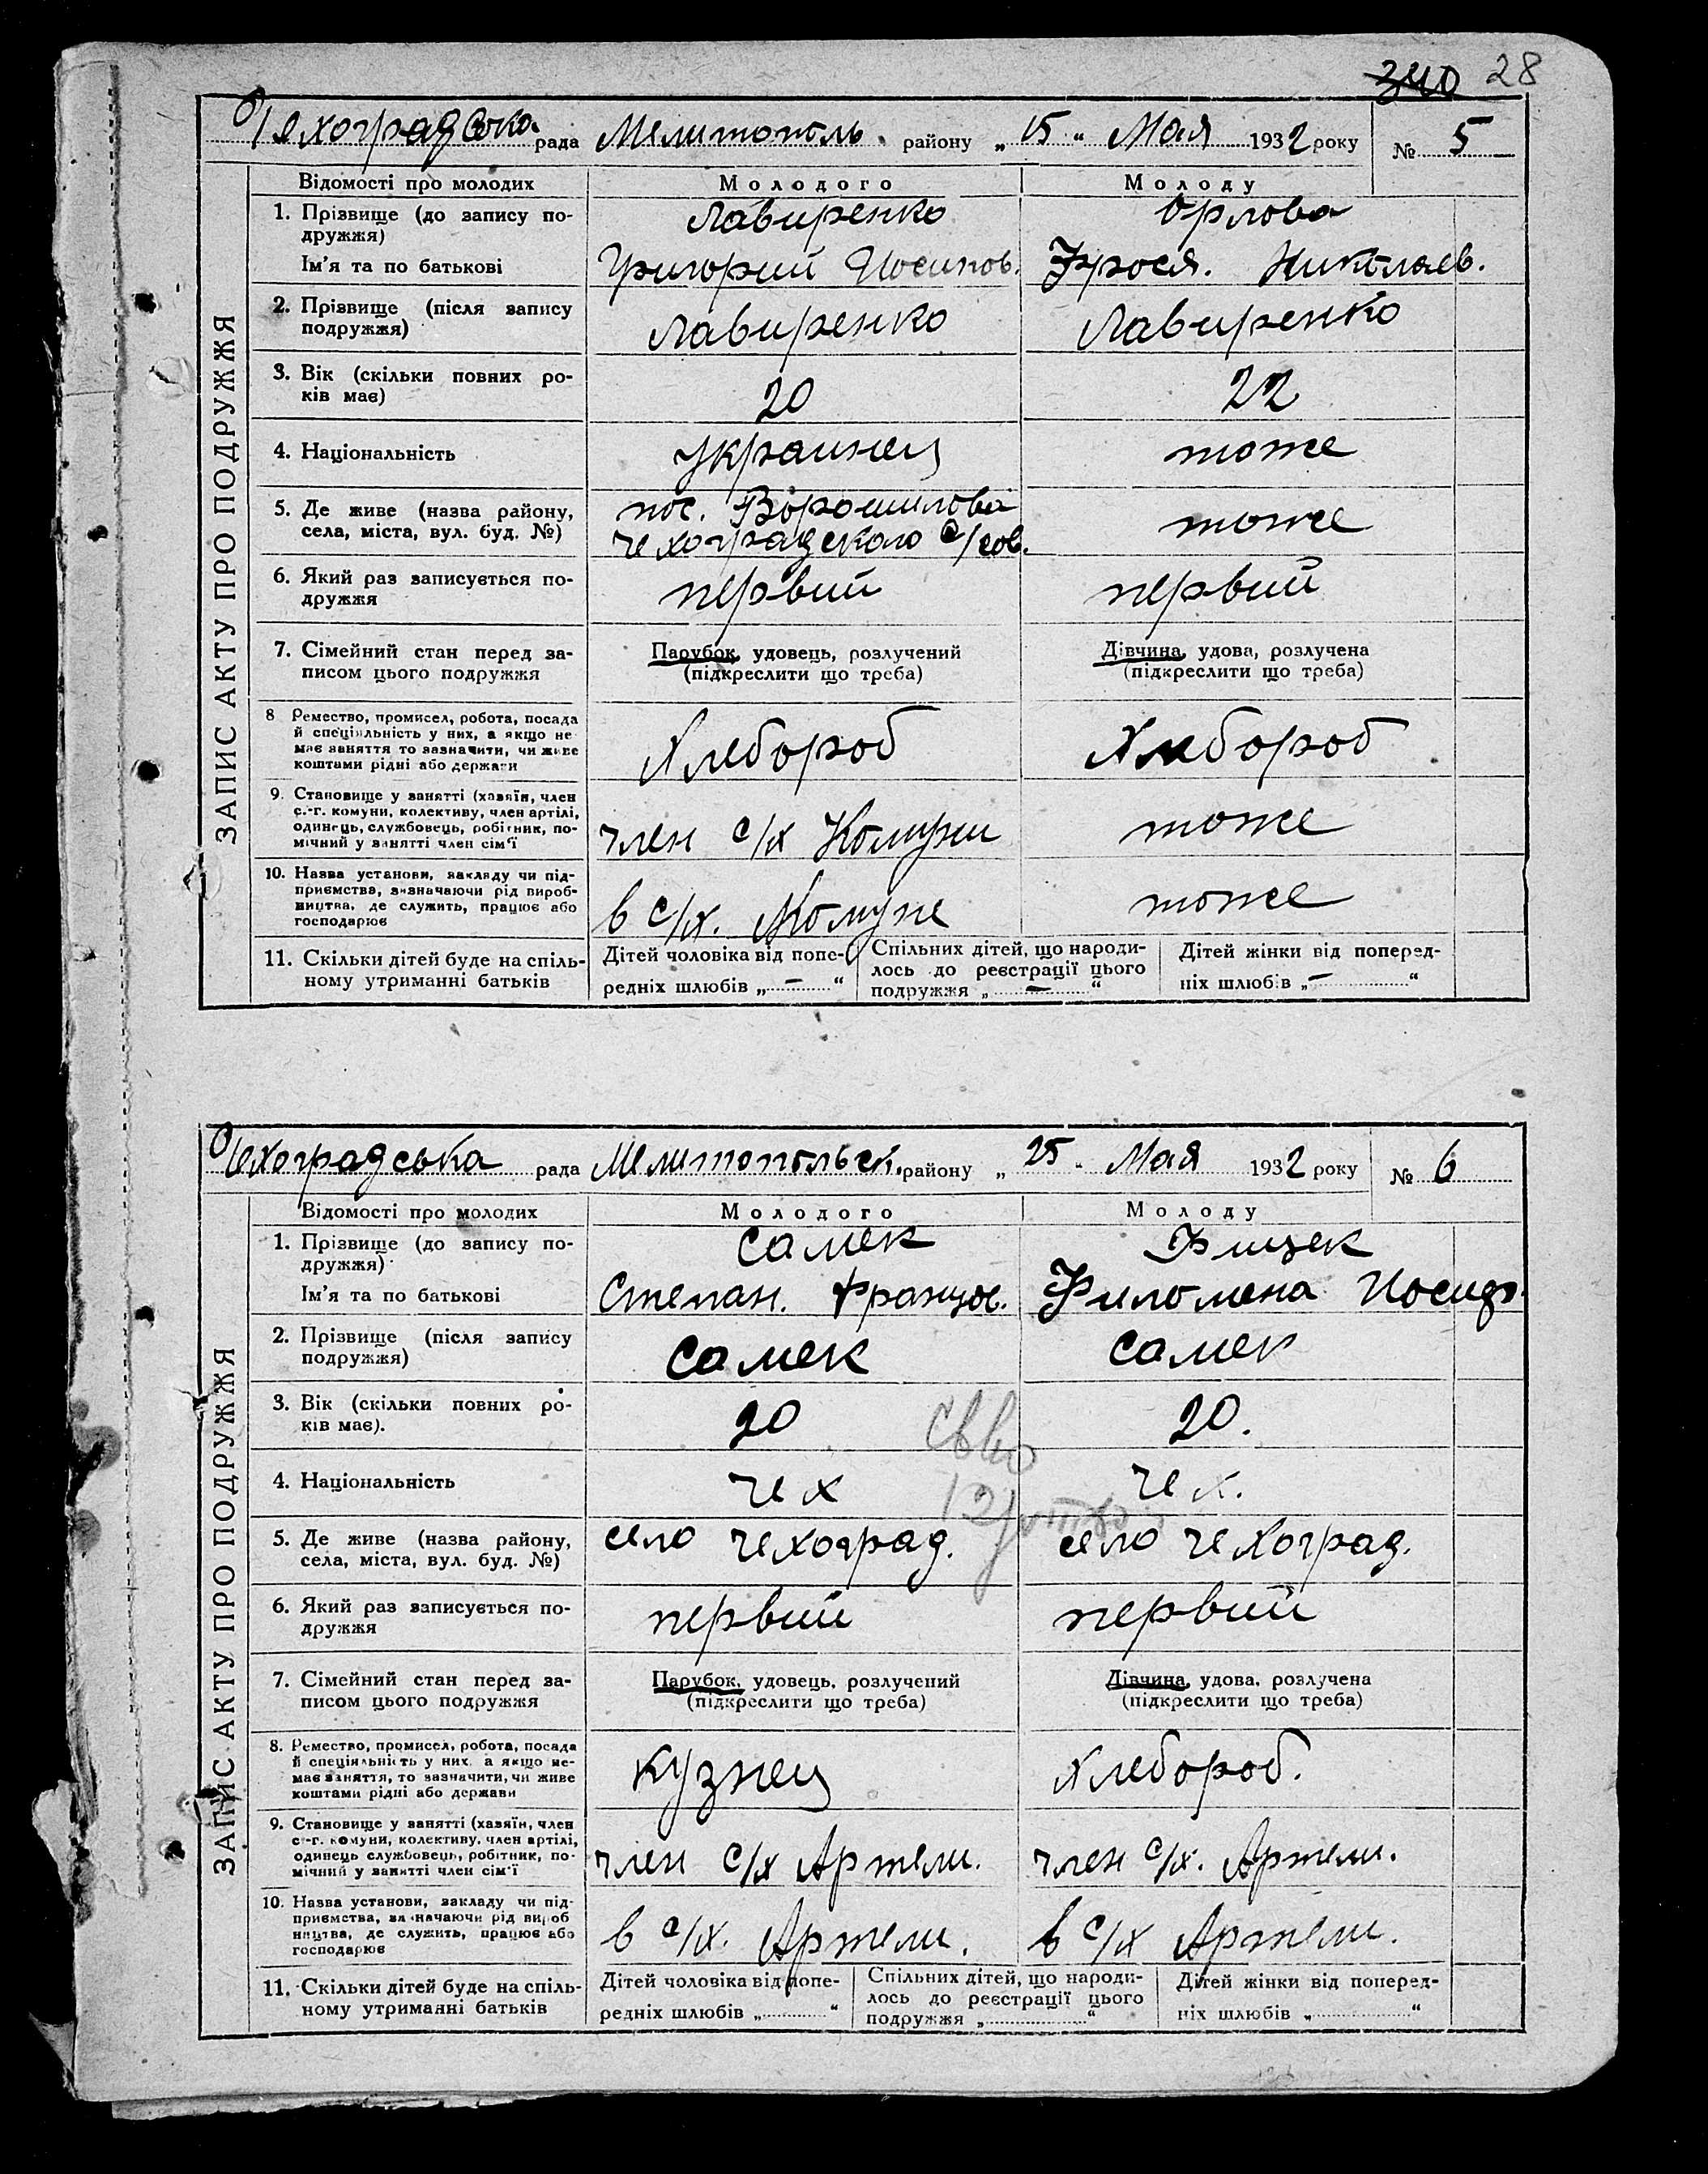 340 28
Чехоградська рада Мелитополь. району „15" Мая 1932 року № 5
Відомості про молодих Молодого Молоду
1. Прізвище (до запису по- Лавиренко Орлова
дружжя)
Ім'я та по батькові Григорий Иосипов. Фрося. Николаев.
2. Прізвище (після запису
подружжя) Лавиренко Лавиренко
3. Вік (скільки повних ро-
ків має) 20 22
4. Національність украинец тоже
5. Де живе (назва району, пос. Ворошилова
села, міста, вул. буд. №) Чехоградского с/сов. тоже
6. Який раз записується по- первий первий
дружжя
7. Сімейний стан перед за- Парубок, удовець, розлучений Дівчина, удова, розлучена
писом цього подружжя (підкреслити що треба) (підкреслити що треба)
8 Ремество, промисел, робота, посада
й спеціяльність у них, а якщо не
має заняття то зазначити, чи живе Хлебороб Хлебороб
коштами рідні або держави
9. Становище у занятті (хазяїн, член
с.-г. комуни, колективу, член артілі,
одинець, службовець, робітник, по- член с/х Комуни тоже
мічний у занятті член сім'ї
10. Назва установи, закладу чи під-
приємства, зазначаючи рід вироб-
ництва, де служить, працює або в с/х. Комуне тоже
господарює
11. Скільки дітей буде на спіль- Дітей чоловіка від попе- Спільних дітей, що народи- Дітей жінки від поперед-
ному утриманні батьків редніх шлюбів „ — " лось до реєстрації цього ніх шлюбів „ — "
подружжя „ — "
ЗАПИС АКТУ ПРО ПОДРУЖЖЯ
Чехоградська рада Мелитопольск. району „25" Мая 1932 року № 6
Відомості про молодих Молодого Молоду
1. Прізвище (до запису по- Самек Фицек
дружжя)
Ім'я та по батькові Степан. Францов. Филомена Иосиф.
2. Прізвище (після запису
подружжя) Самек Самек
3. Вік (скільки повних ро-
ків має). 20 20.
4. Національність чех чех.
5. Де живе (назва району, село Чехоград. село Чехоград.
села, міста, вул. буд. №)
6. Який раз записується по- первий первий
дружжя
7. Сімейний стан перед за- Парубок, удовець, розлучений Дівчина, удова, розлучена
писом цього подружжя (підкреслити що треба) (підкреслити що треба)
8. Ремество, промисел, робота, посада
й спеціяльність у них, а якщо не-
має заняття, то зазначити, чи живе кузнец Хлебороб.
коштами рідні або держави
9. Становище у занятті (хазяїн, член
с-г. комуни, колективу, член артілі,
одинець службовець, робітник, по- член с/х Артели. член с/х. Артели.
мічний у занятті член сім'ї
10. Назва установи, закладу чи під-
приємства, зазначаючи рід вироб
ництва, де служить, працює або в с/х. Артели. в с/х Артели.
господарює
11. Скільки дітей буде на спіль- Дітей чоловіка від попе- Спільних дітей, що народи- Дітей жінки від поперед-
ному утриманні батьків редніх шлюбів „ " лось до реєстрації цього ніх шлюбів „ "
подружжя „ "
ЗАПИС АКТУ ПРО ПОДРУЖЖЯ